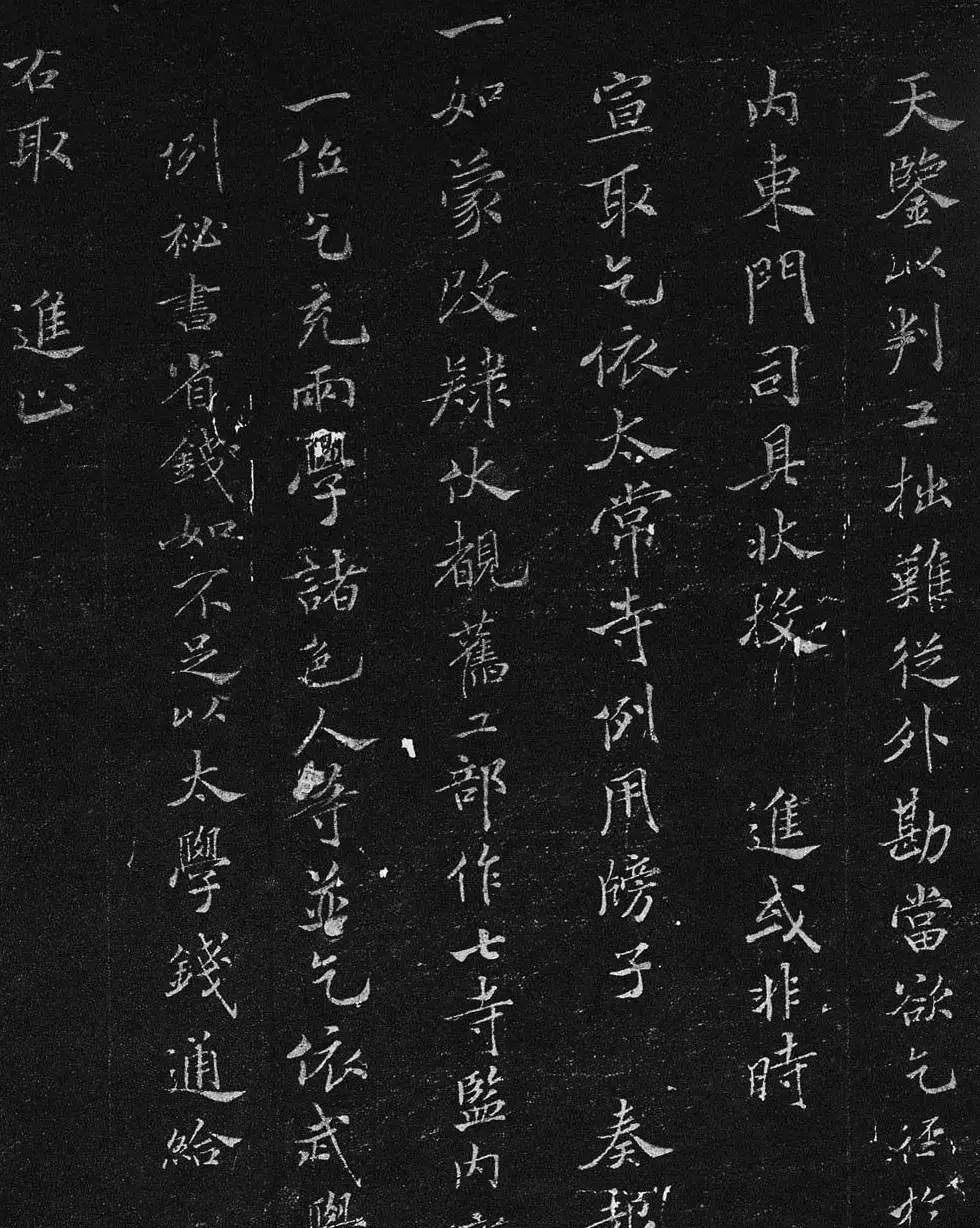 天鑒以判工拙難從外勘當欲乞祗於
内東門司具狀投 進或非時
宣取乞依太常寺例用牓子 奏
一如蒙改肄伏覩舊工部作七寺監内
一位乞充兩學諸色人等並乞依武學
例祕書省錢如不足以太學錢通給
右取 進止